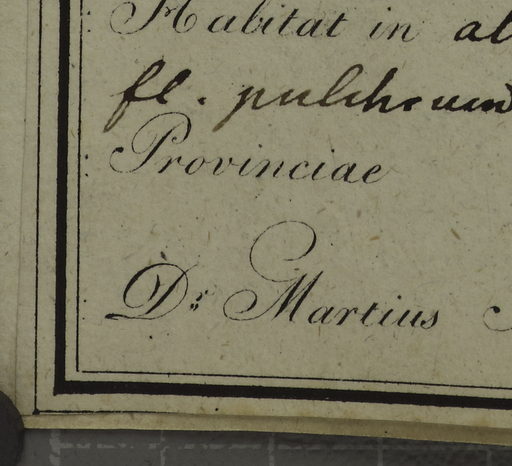 Habitat in al
fl. pulchrum
Provinciae
Dr. Martius